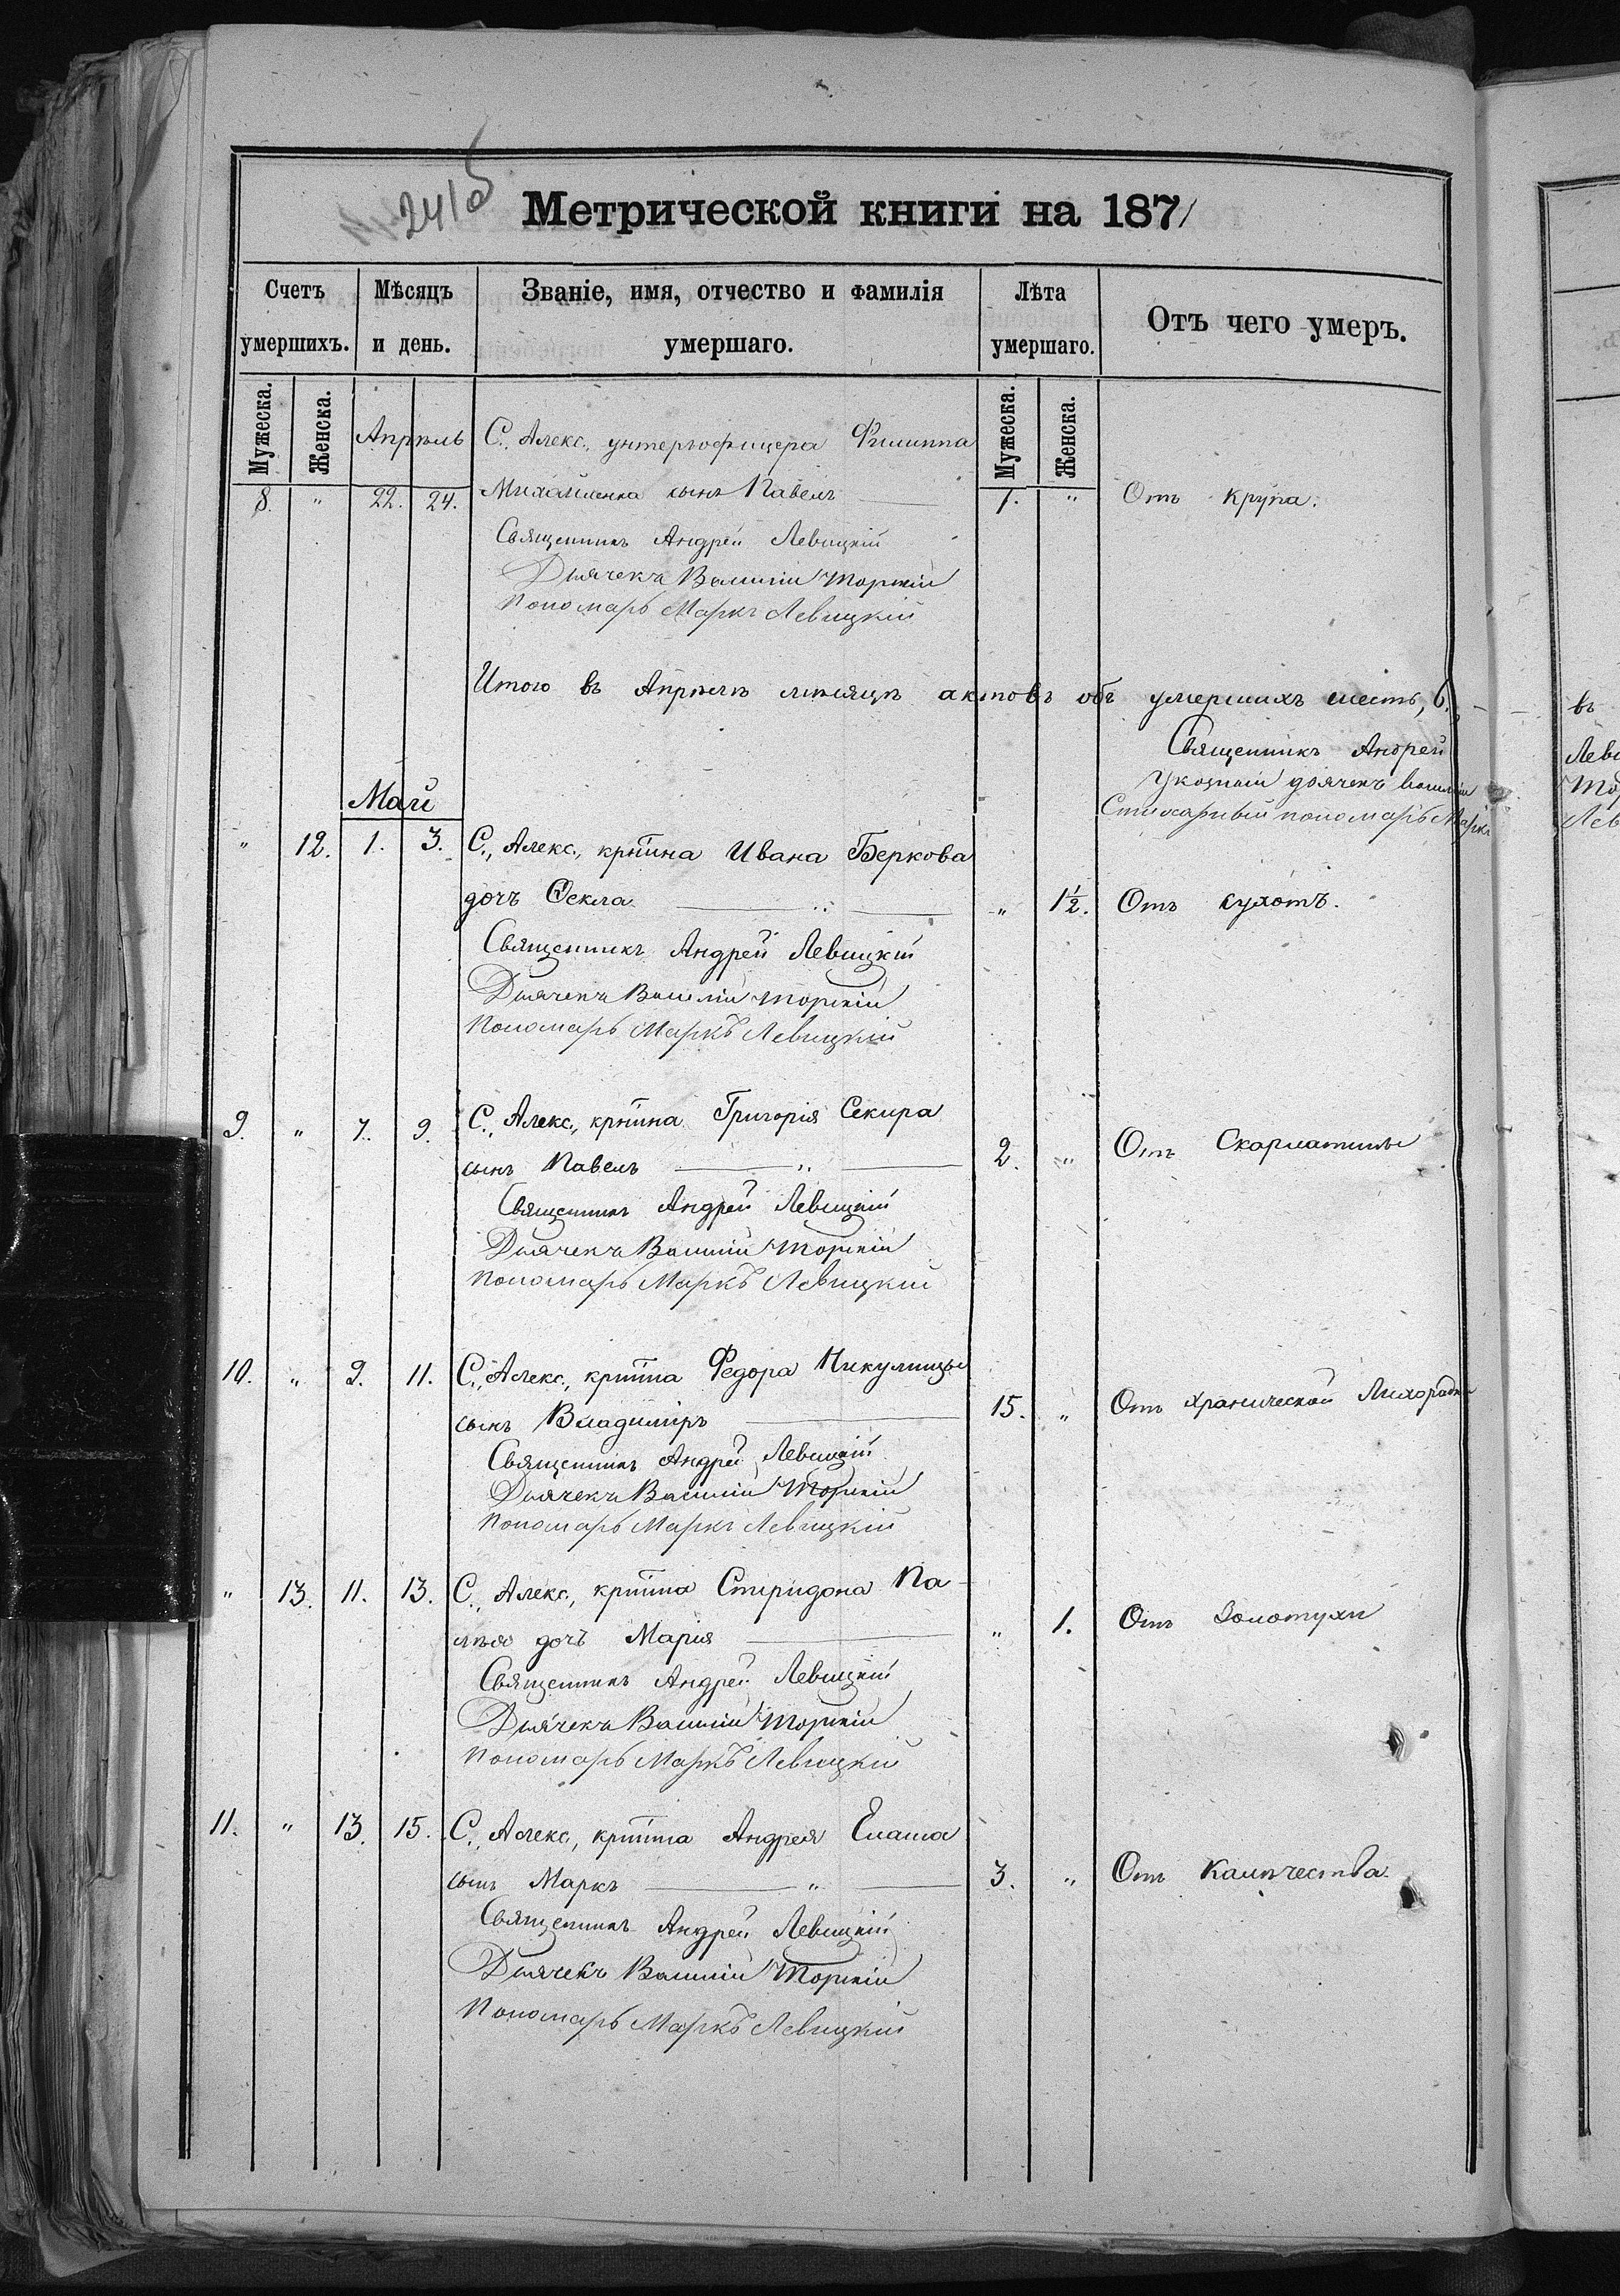 241об
Метрической книги на 1871
Счетъ умершихъ.
Мѣсяцъ и день.
Званіе, имя, отчество и фамилія умершаго.
Лѣта умершаго.
Отъ чего умеръ.
Мужеска. Женска. Мужеска. Женска.
Апрѣль С., Алекс., унтерофицера Филиппа
8. " 22. 24. Михайленка сынъ Павелъ 1. " Отъ крупа.
Священникъ Андрей Левицкій
Дьячекъ Василій
Пономарь Маркъ Левицкій
Итого въ Апрѣлѣ мѣсяцѣ актовъ объ умершихъ шесть, 6.
Священникъ Андрей
Указный дьячекъ Василій
Стихарный пономарь Маркъ
Май
" 12. 1. 3. С., Алекс., крѣтина Ивана Беркова
дочъ Ѳекла " 1½. Отъ сухотъ.
Священникъ Андрей Левицкій
Дьячекъ Василій
Пономарь Маркъ Левицкій
9. " 7. 9. С., Алекс., крѣтина Григорія Секира
сынъ Павелъ " 2. " Отъ Скарлатины
Священникъ Андрей Левицкій
Дьячекъ Василій
Пономарь Маркъ Левицкій
10. " 9. 11. С., Алекс., крѣтина Федора Никулицы
сынъ Владиміръ 15. " Отъ хранической Лихорадки
Священникъ Андрей Левицкій
Дьячекъ Василій
Пономарь Маркъ Левицкій
" 13. 11. 13. С., Алекс., крѣтина Спиридона Па-
лѣя дочъ Марія " 1. Отъ Золотухи
Священникъ Андрей Левицкій
Дьячекъ Василій
Пономарь Маркъ Левицкій
11. " 13. 15. С., Алекс., крѣтина Андрея
сынъ Маркъ " 3. " Отъ Калѣчества.
Священникъ Андрей Левицкій
Дьячекъ Василій
Пономарь Маркъ Левицкій